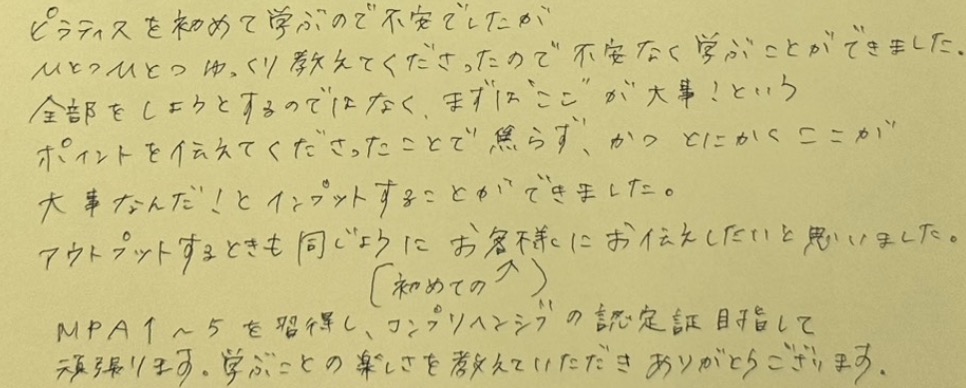 ピラティスを初めて学ぶので不安でしたが
ひとつひとつゆっくり教えてくださったので不安なく学ぶことができました。
全部をしようとするのではなく、まずは"ここ"が大事！という
ポイントを伝えてくださったことで焦らず、かつとにかくここが
大事なんだ！とインプットすることができました。
アウトプットするときも同じようにお客様にお伝えしたいと思いました。
(初めての↗)
MPA1〜5を習得し、コンプリヘンシブの認定証目指して
頑張ります。学ぶことの楽しさを教えていただきありがとうございます。